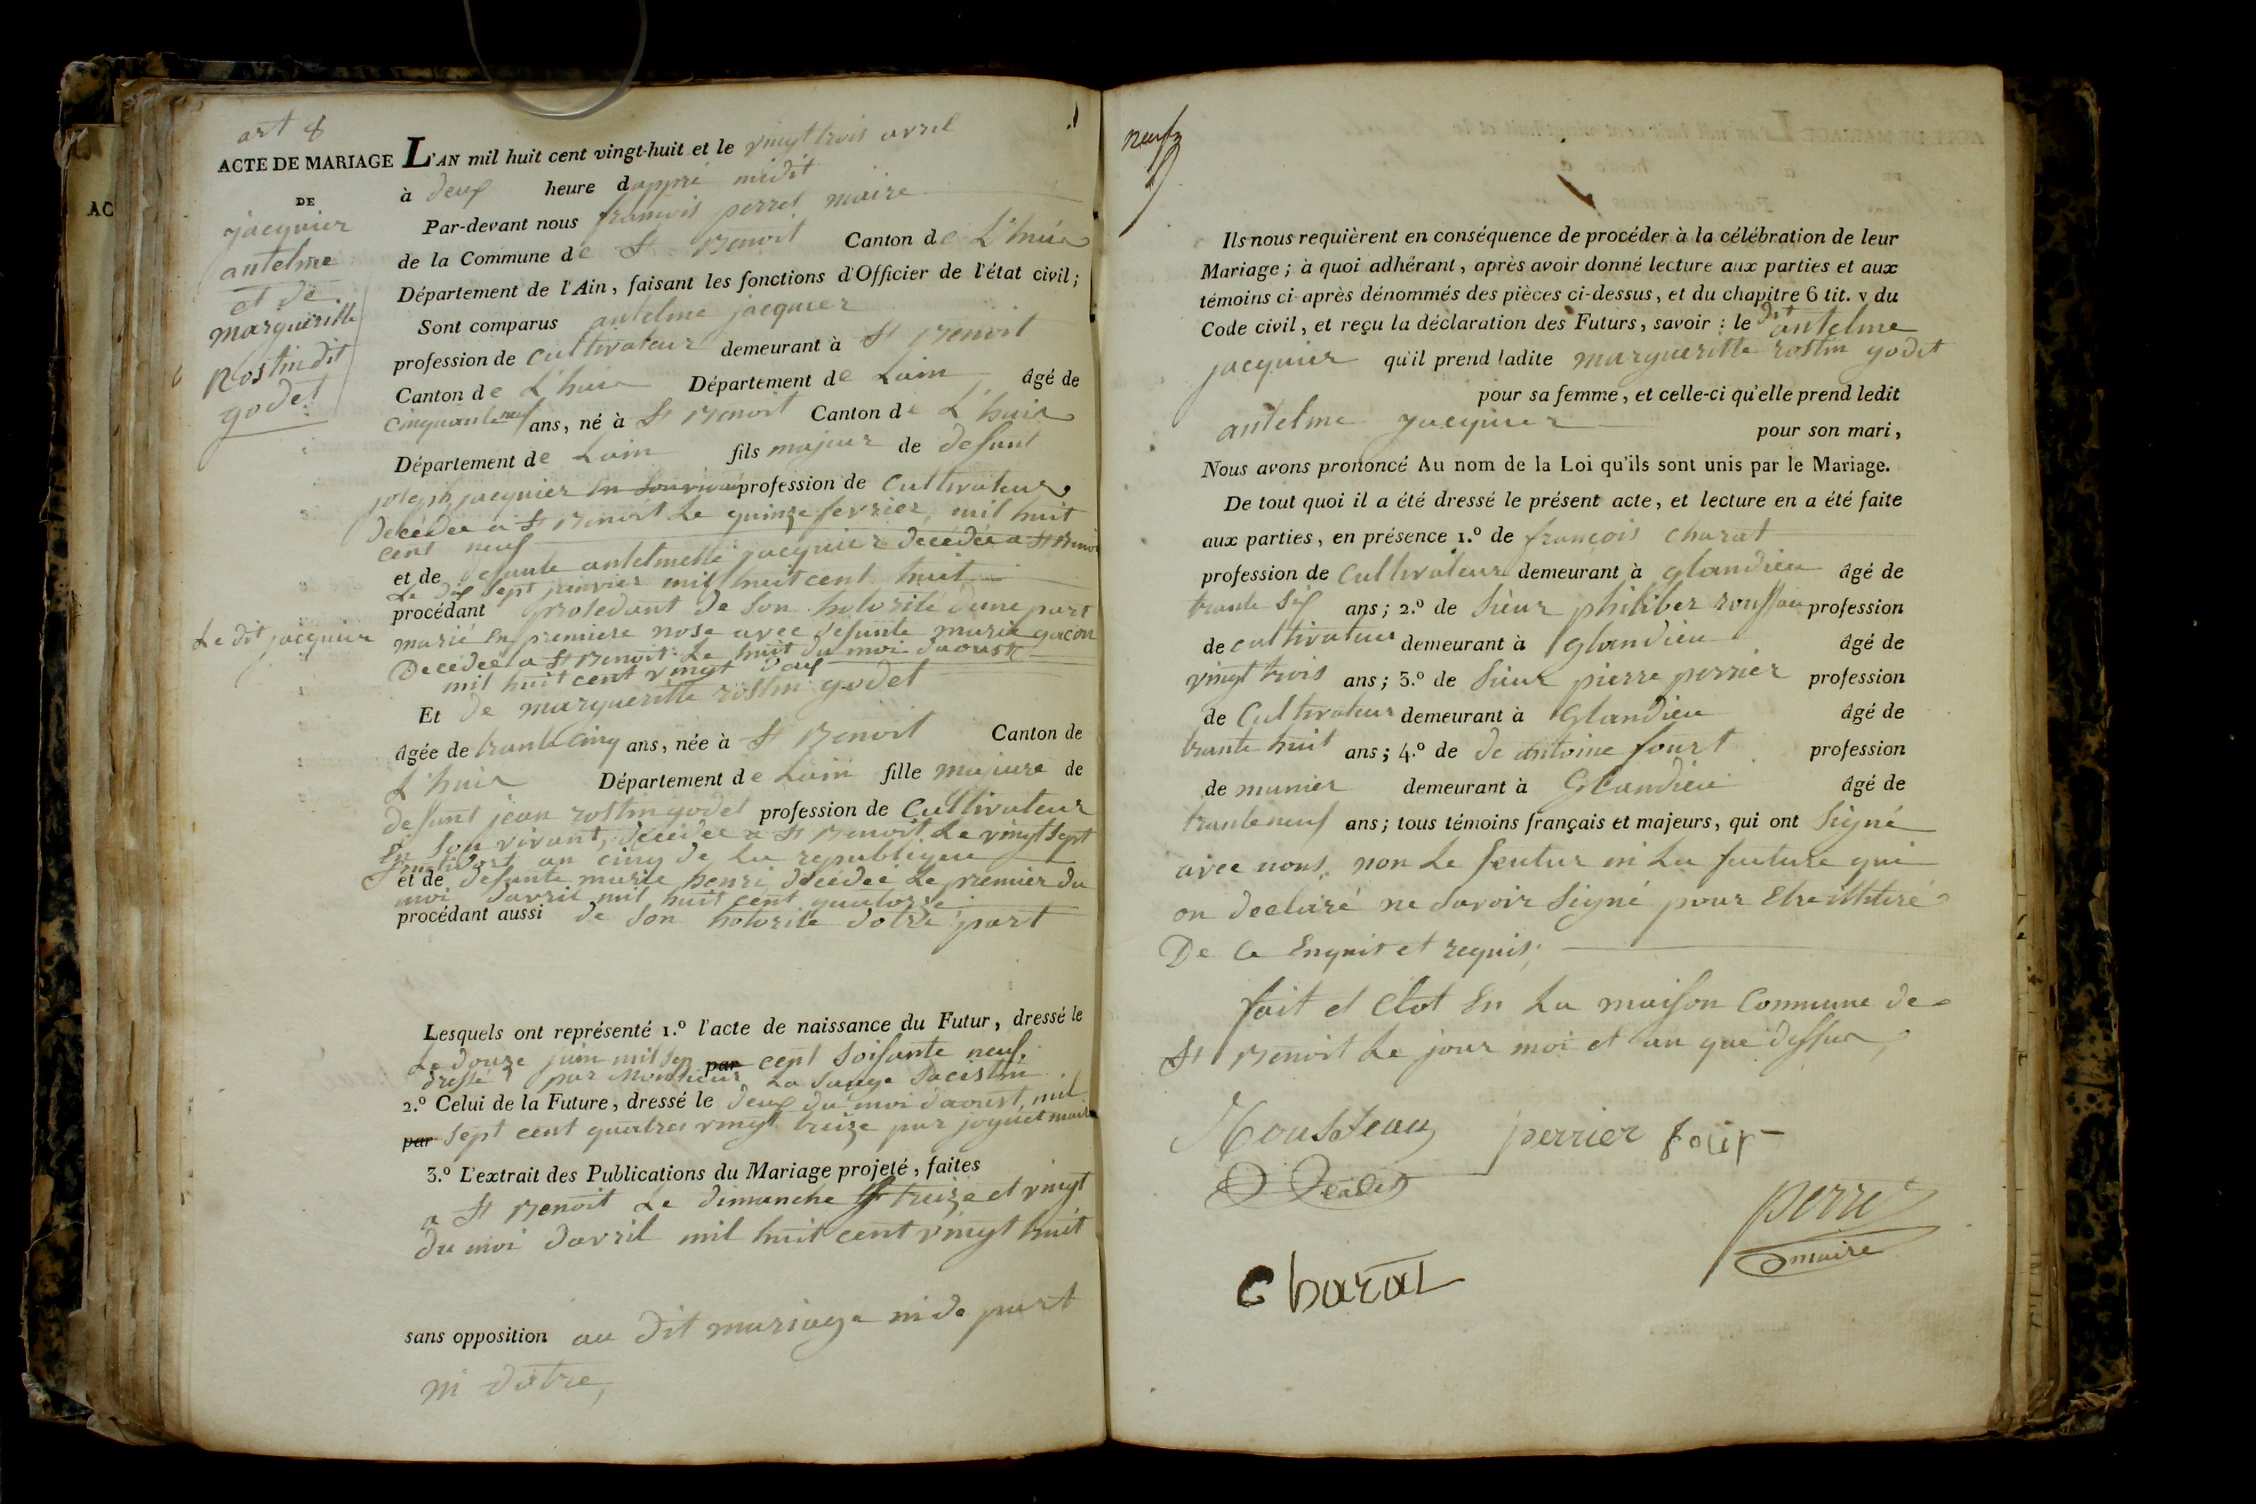 art 8
ACTE DE MARIAGE
DE
jacquier
antelme
et de
margueritte
Rostin dit
godet
L'AN mil huit cent vingt-huit et le vingt trois avril
à deux heure dappré midit
Par-devant nous francois perret maire
de la Commune de St Benoit Canton de L'huis
Département de l'Ain, faisant les fonctions d'Officier de l'état civil;
Sont comparus antelme jacquier
profession de cultivateur demeurant à St Benoit
Canton de L'huis Département de Lain âgé de
cinquante neuf ans, né à St Benoit Canton de L'huis
Département de Lain fils majeur de defunt
joseph jacquier en son vivant profession de Cultivateur
decedee a St Benoit Le quinze fevrier, mil huit
cent neuf
et de defunte antelmette jacquier decedée a St Benoi
Le dix sept janvier mil huit cent huit
procédant prosedant de son hotorité dune part
Le dit jacquier
marié en premiere nose avec defunte marie gucon
Decedee a St Benoit Le huit du moi daoust
mil huit cent vingt deux
Et de margueritte rostin godet
âgée de trante cinq ans, née à St Benoit Canton de
L'huis Département de Lain fille majeure de
defunt jean rostin godet profession de Cultivateur
En son vivant, decedee a St Benoit Le vingt sept
fructidort an cinq de la republique
et de defunte marie henri decedee Le premier du
moi davril mil huit cent quatorse
procédant aussi de son hotorite dotre part
Lesquels ont représenté 1.º l'acte de naissance du Futur, dressé le
Le douze juin mil sep par cent soisante neuf,
dressé par Monsieur La sauge Sacistin
2.º Celui de la Future, dressé le deux du moi daoust, mil
par sept cent quatres vingt treize par joguet maire
3.º L'extrait des Publications du Mariage projeté, faites
a St Benoit Le dimanche treize et vingt
du moi davril mil huit cent vingt huit
sans opposition au dit mariage ni de part
ni dotre,
neuf
9
Ils nous requièrent en conséquence de procéder à la célébration de leur
Mariage; à quoi adhérant, après avoir donné lecture aux parties et aux
témoins ci-après dénommés des pièces ci-dessus, et du chapitre 6 tit. v du
Code civil, et reçu la déclaration des Futurs, savoir: le dit antelme
jacquier qu'il prend ladite margueritte rostin godet
pour sa femme, et celle-ci qu'elle prend ledit
antelme jacquier pour son mari,
Nous avons prononcé Au nom de la Loi qu'ils sont unis par le Mariage.
De tout quoi il a été dressé le présent acte, et lecture en a été faite
aux parties, en présence 1.º de françois charat
profession de Cultivateur demeurant à glandieu âgé de
trante six ans; 2.º de Sieur philiber roussau profession
de cultivateur demeurant à glandieu âgé de
vingt trois ans; 3.º de Sieur pierre perrier profession
de Cultivateur demeurant à Glandieu âgé de
trante huit ans; 4.º de de antoine fourt profession
de munier demeurant à Glandieu âgé de
trante neuf ans; tous témoins français et majeurs, qui ont signé
avec nous, non Le feutur ni La fauture qui
on declaré ne savoir signé pour Etre illitiré
De Ce Enquit et requis,
fait et Clot En La maison Commune de
St Benoit Le jour moi et an que dessus,
Rousteau perrier four
perret
maire
Charat